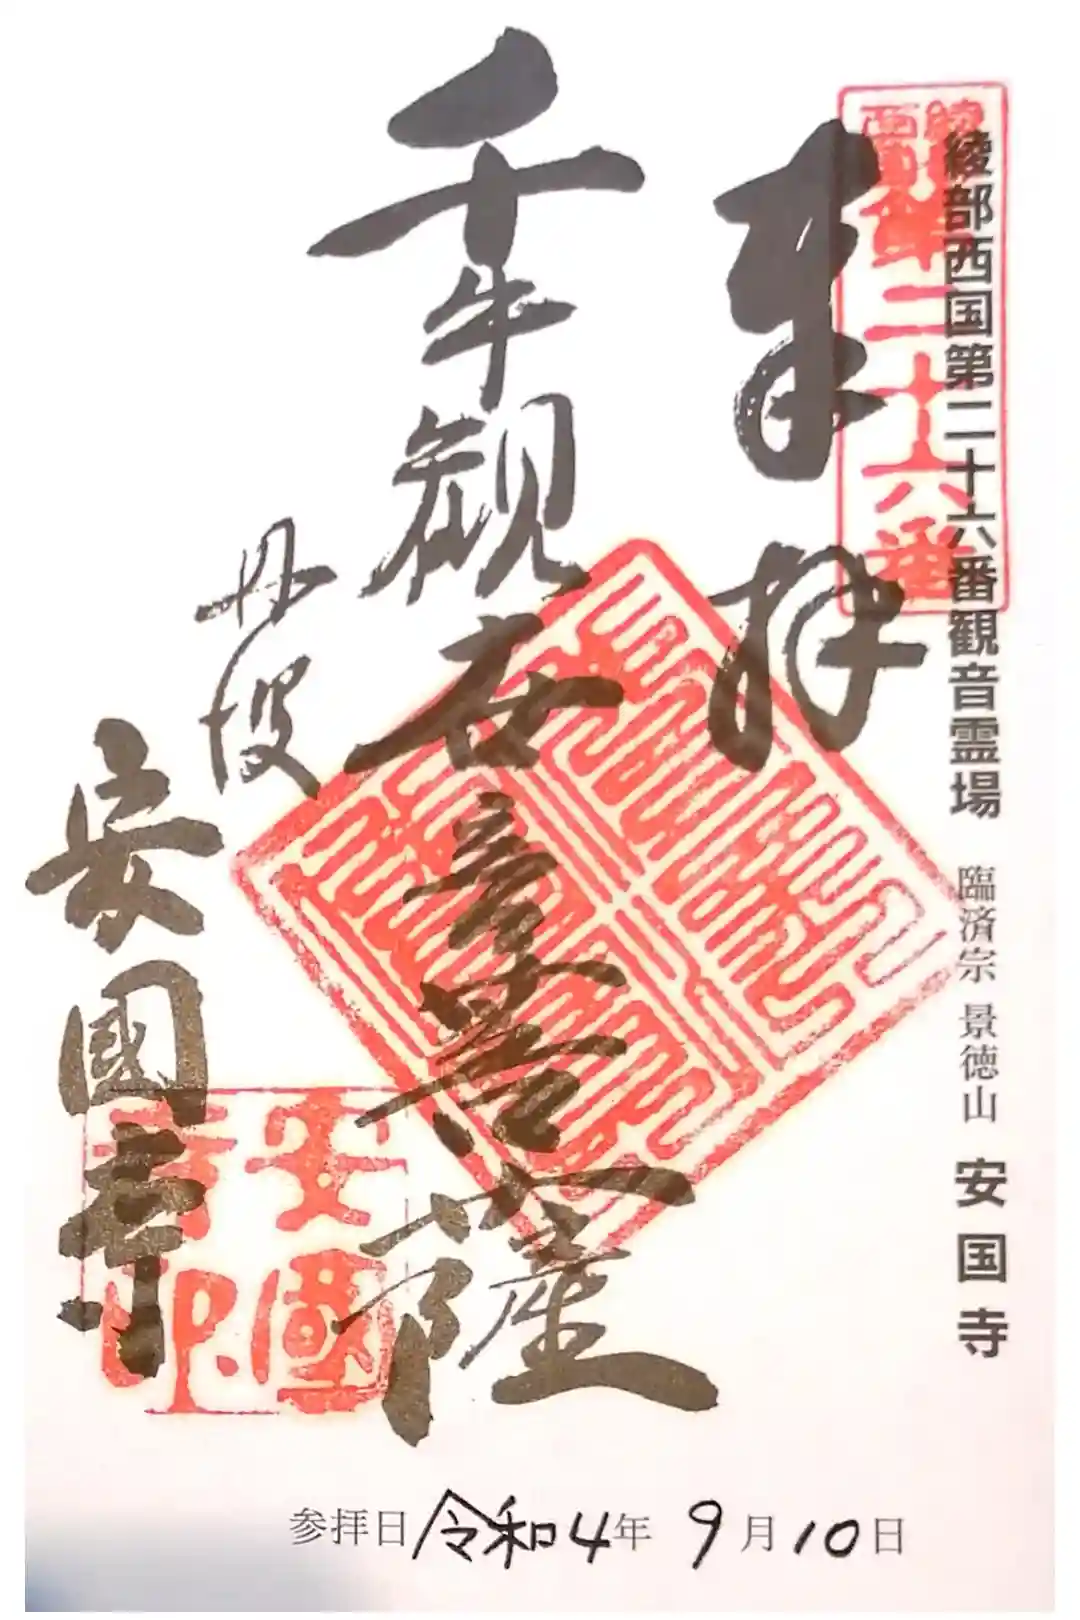 綾部西国第二十六番観音霊場 臨済宗 景徳山 安国寺
第二十六番
奉拝
千手観世音菩薩
丹波
安國寺
安國
寺印
参拝日 令和4年 9月10日